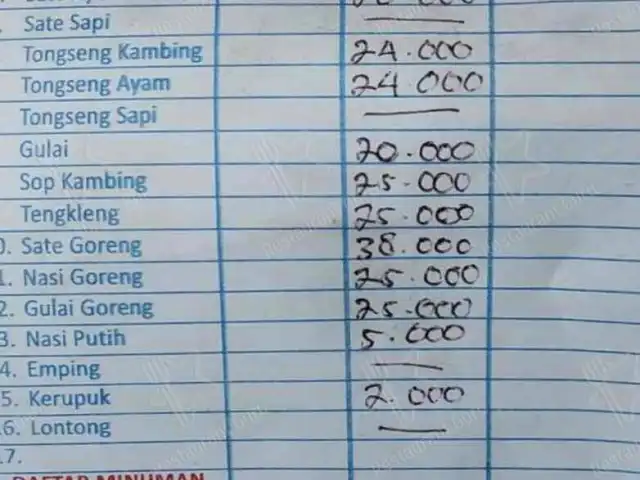 Sate Sapi
Tongseng Kambing 24.000
Tongseng Ayam 24.000
Tongseng Sapi
Gulai 20.000
Sop Kambing 25.000
Tengkleng 25.000
0. Sate Goreng 38.000
1. Nasi Goreng 25.000
2. Gulai Goreng 25.000
3. Nasi Putih 5.000
4. Emping
5. Kerupuk 2.000
6. Lontong
17.
DAFTAR MINUMAN